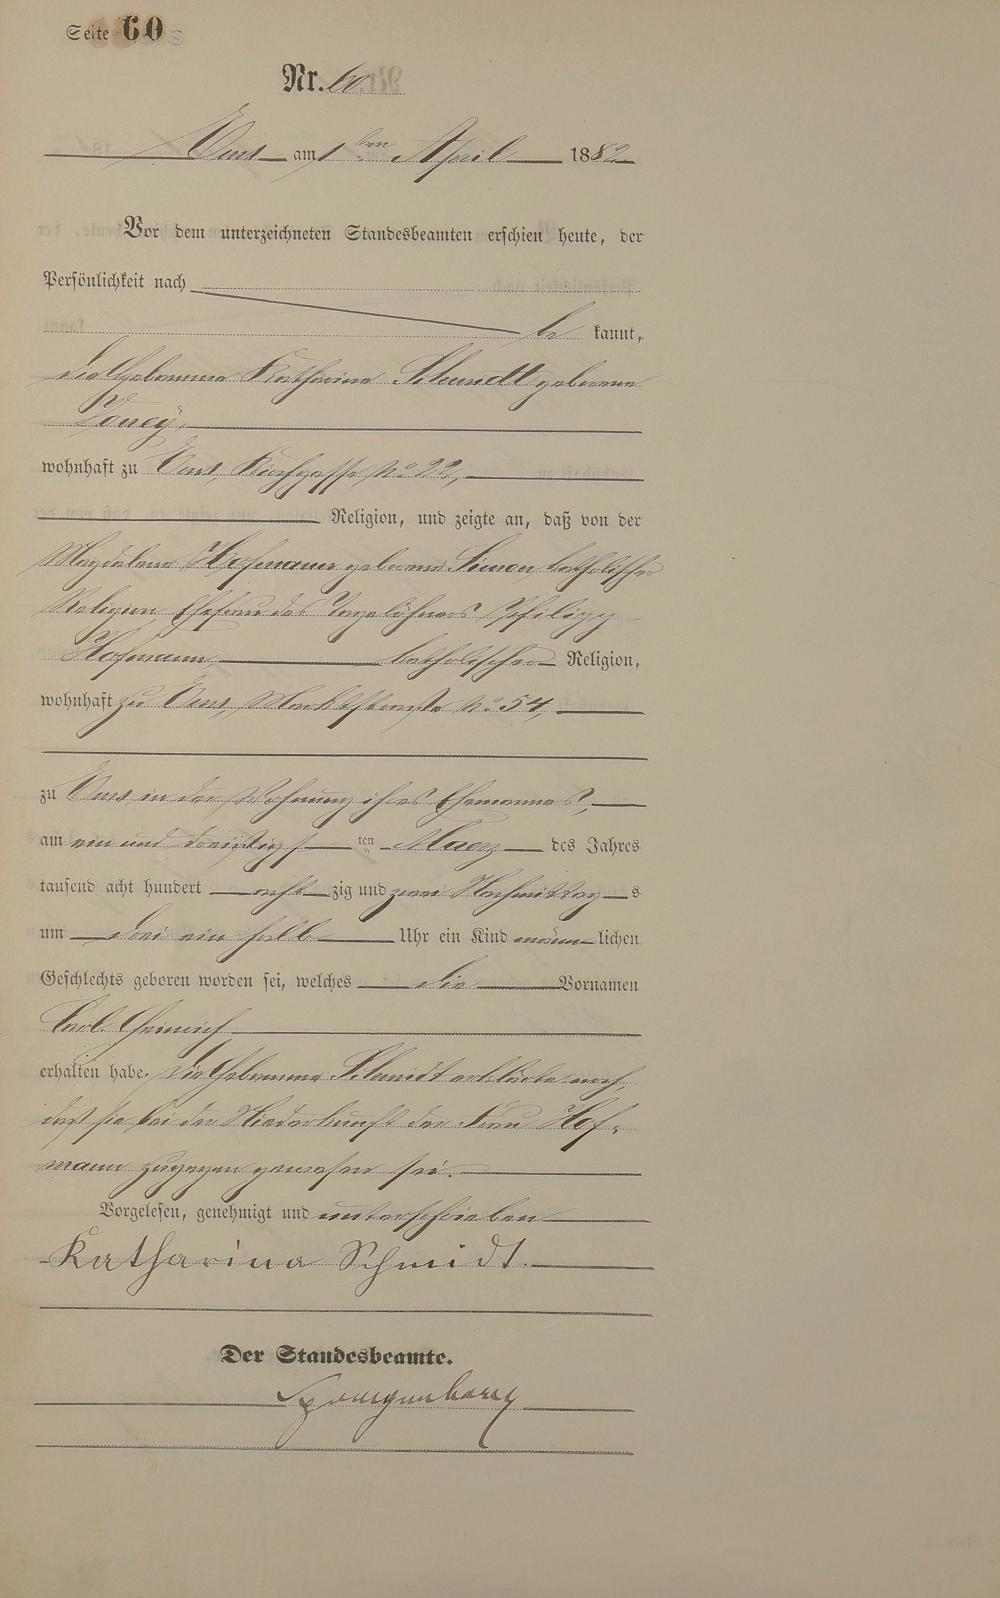 Seite 60
Nr. 60.
Ems am 1ten April 1882
Vor dem unterzeichneten Standesbeamten erschien heute, der
Persönlichkeit nach
be kannt,
die Hebamme Katharina Schmidt geborene
wohnhaft zu Ems, Kirchgasse No 22,
Religion, und zeigte an, daß von der
Magdalena Hofmann geborene Simon katholischer
Religion, Ehefrau des Tagelöhners Philipp
Hofmann, katholischer Religion,
wohnhaft zu Ems, Marktstraße No 54,
zu Ems in der Wohnung ihres Ehemannes,
am ein und dreißigs ten Maerz des Jahres
tausend acht hundert acht zig und zwei Nachmittag s
um drei ein halb Uhr ein Kind männ lichen
Geschlechts geboren worden sei, welches die Vornamen
Carl Heinrich
erhalten habe. Die Hebamme Schmidt erklärte noch,
daß sie bei der Niederkunft der Frau Hof-
mann zugegen gewesen sei.
Vorgelesen, genehmigt und unterschrieben
Katharina Schmidt.
Der Standesbeamte.
Spangenberg